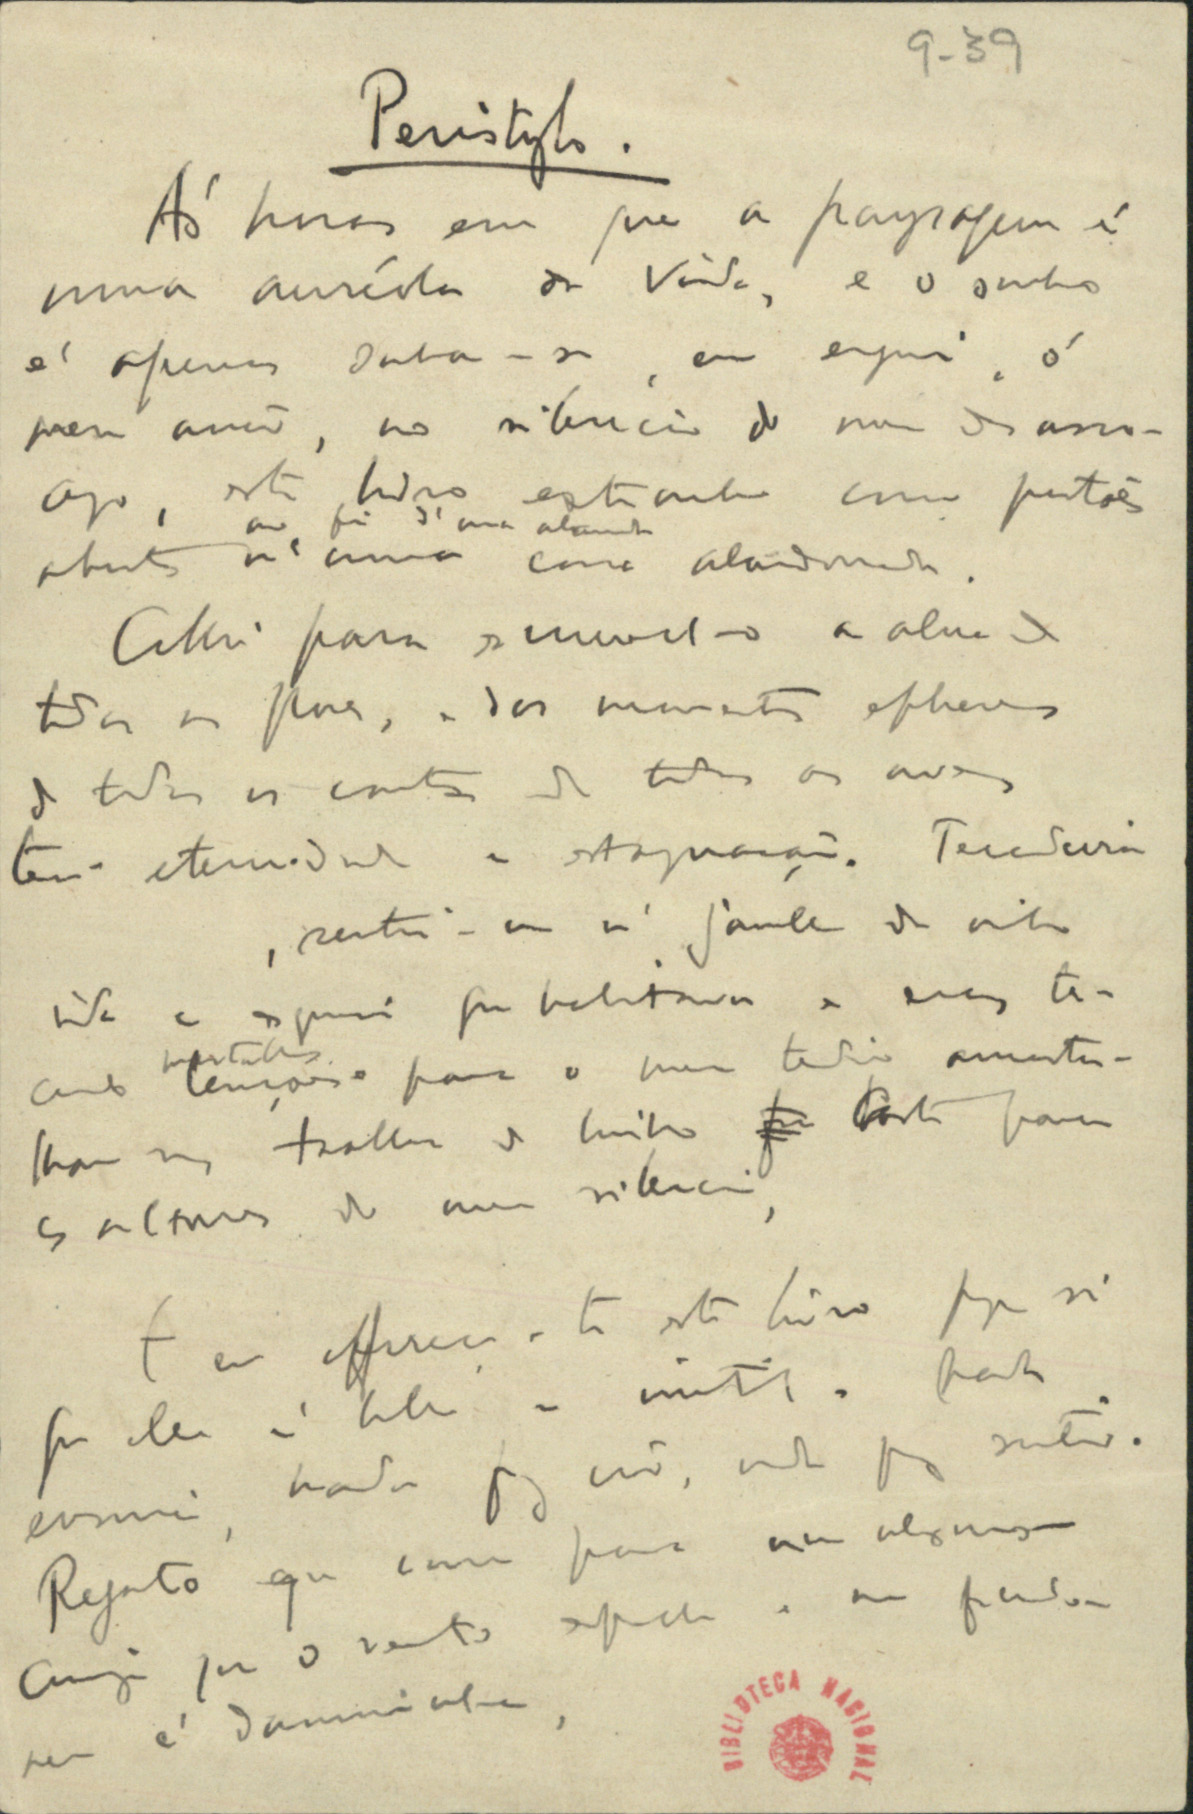 9-39
Peristylo.
Ás horas em que a paysagem é
uma auréola da Vida, e o sonho
é apenas sonhar-se, eu ergui, ó
meu amor, no silencio do meu desasso-
cego, este livro estranho como portões
ao fim d'uma alameda
abertos n'uma casa abandonada.
Colhi para escrevel-o a alma de
todas as flores, e dos momentos ephemeros
de todos os cantos de todas as aves
teci eternidade e estagnação. Tecedeira
, sentei-me á janella da minha
vida e esqueci que habitava e era, te-
mortalhas
cendo lençoes para o meu tedio amorta-
lhar nas toalhas de linho casto para
os altares do meu silencio,
E eu offereço-te este livro porque sei
que elle é bello e inutil. Nada
ensina, nada faz crêr, nada faz sentir.
Regato que corre para um abysmo-
cinza que o vento espalha e nem fecunda
nem é damninha,
BIBLIOTECA NACIONAL